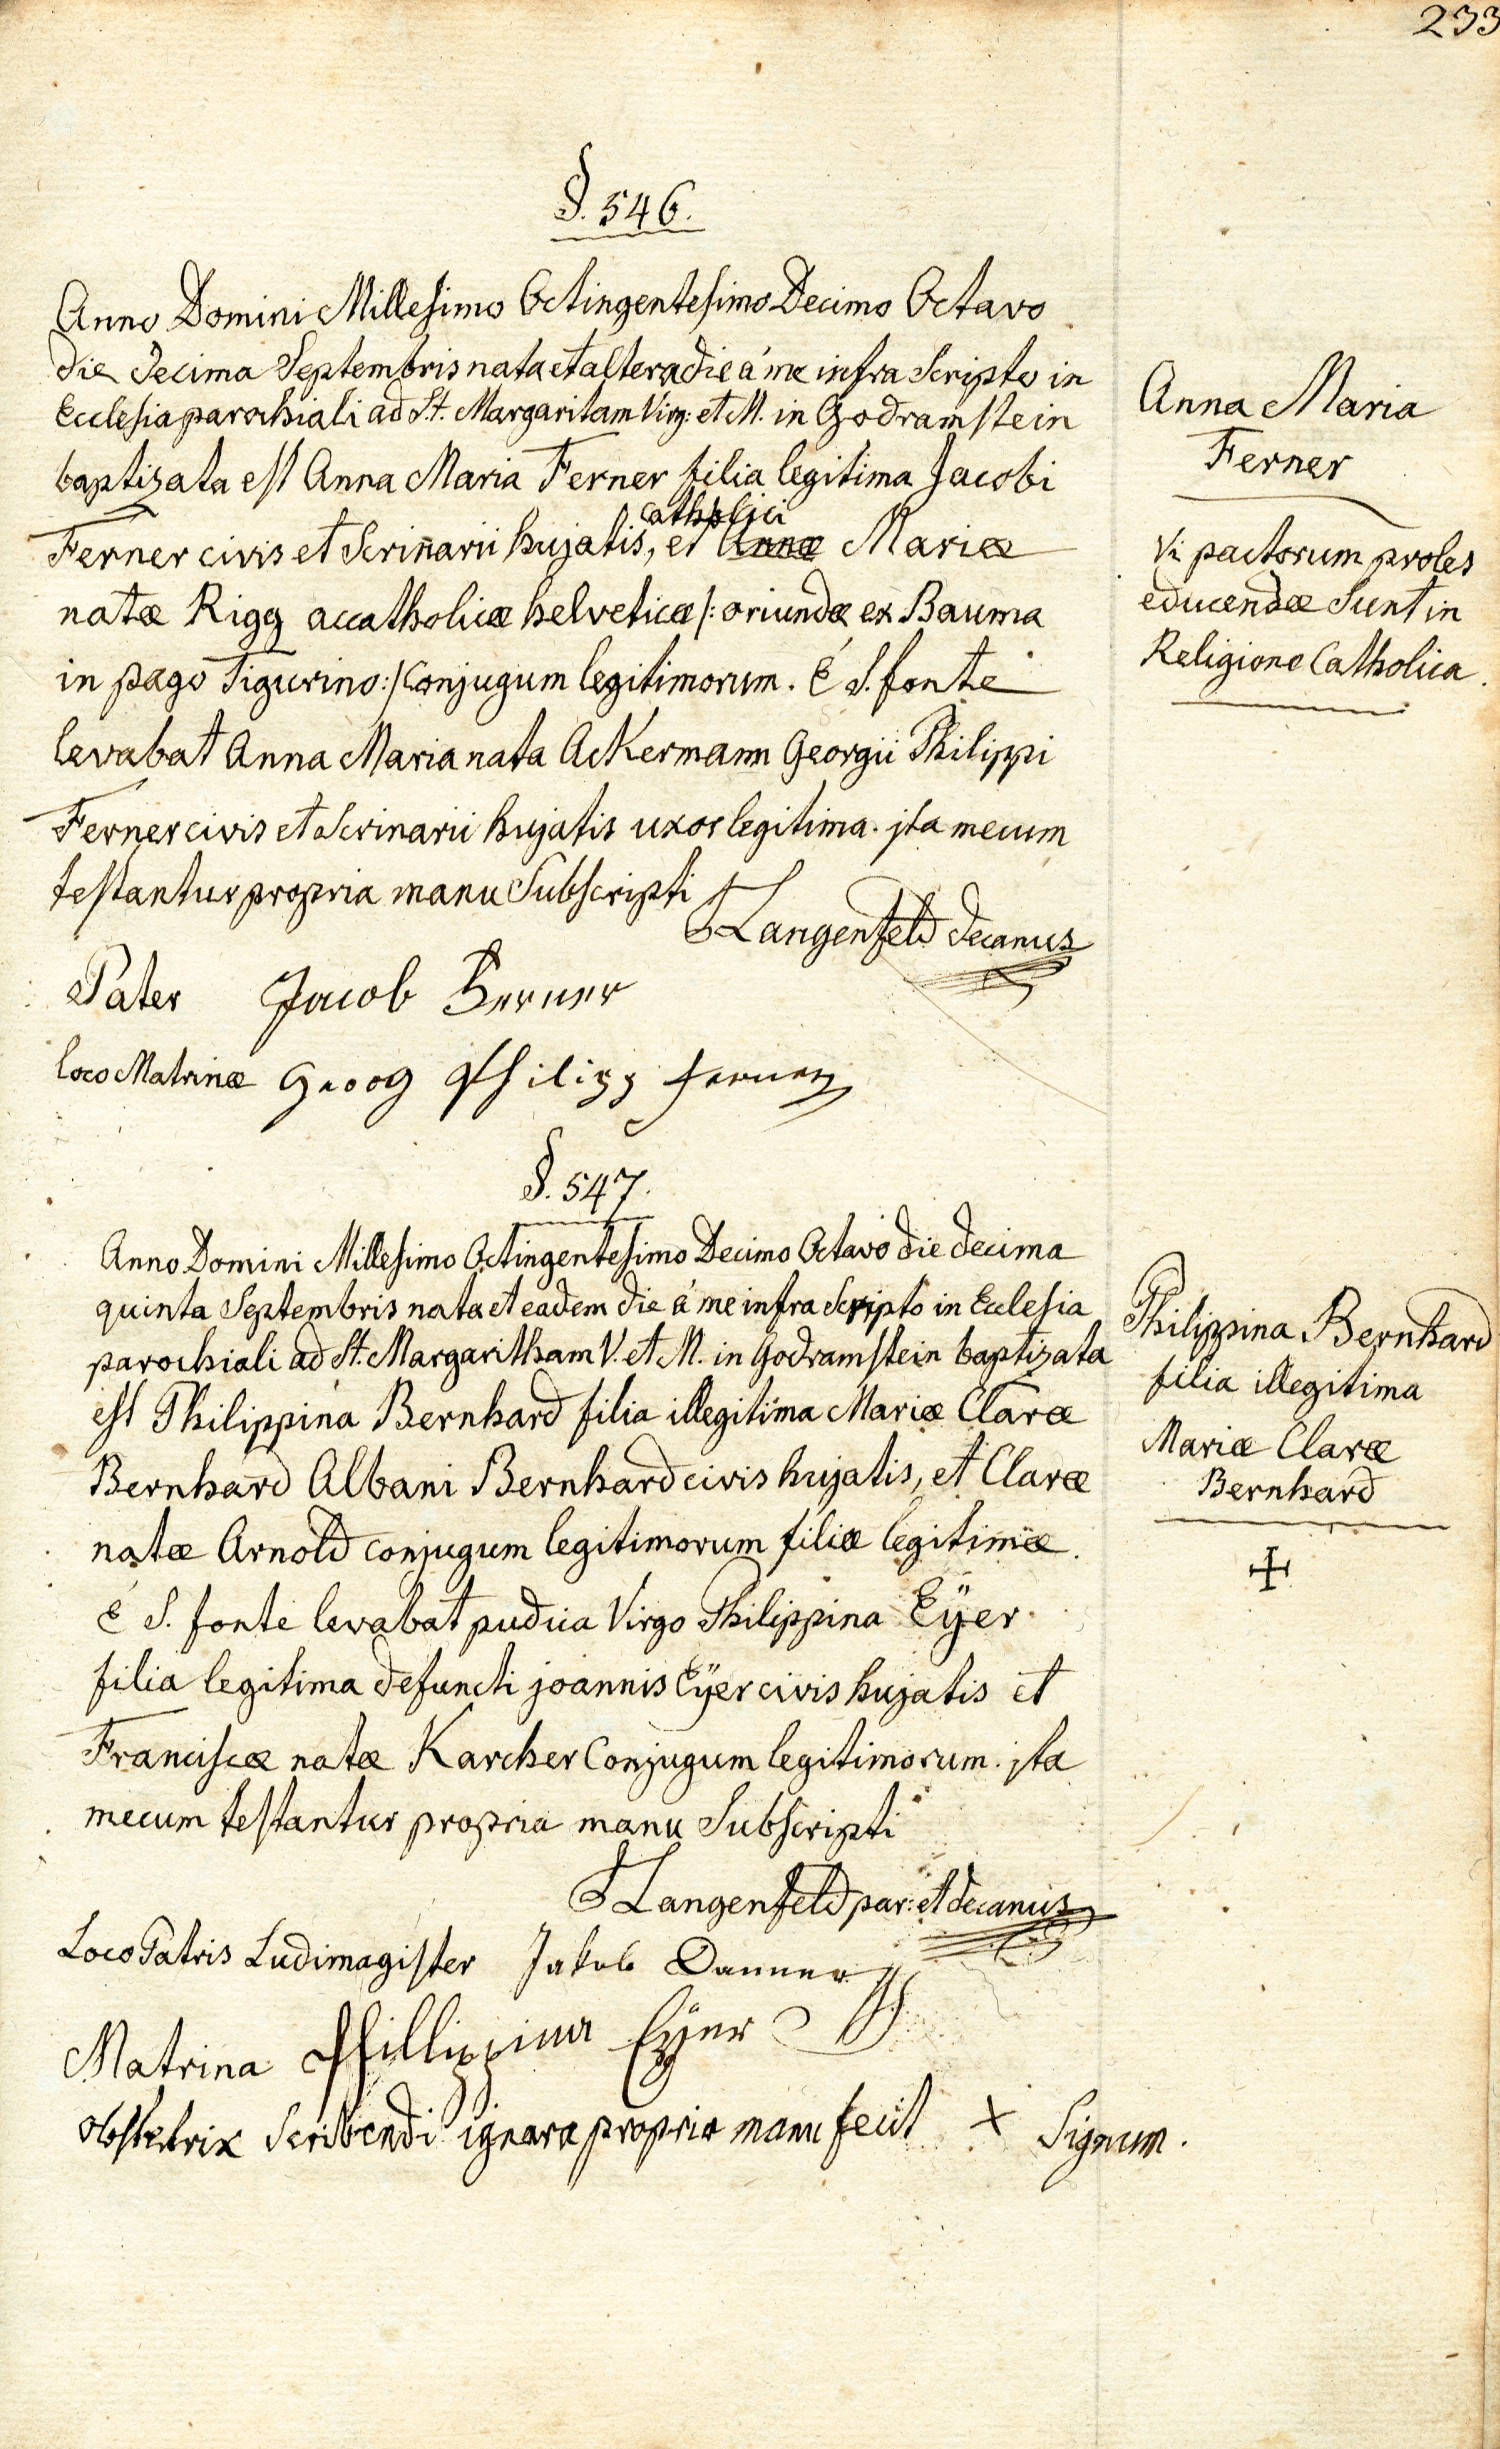 233
§. 546.
Anno Domini Millesimo Octingentesimo Decimo Octavo
die decima Septembris nata et altera die á me infra Scripto in
Ecclesia parochiali ad St. Margaritam Virg: et M. in Godramstein
baptizata est Anna Maria Ferner filia legitima Jacobi
catholici
Ferner civis et Scrinarii hujatis, et Annæ Mariæ
natæ Rigg accatholicæ helveticæ /: oriundæ ex Bauma
in pago Tigurino :/ Conjugum legitimorum. é S. fonte
levabat Anna Maria nata Ackermann Georgii Philippi
Ferner civis et Scrinarii hujatis uxor legitima. jta mecum
testantur propria manu Subscripti
Langenfeld decanus
Pater Jacob Ferner
loco Matrinæ Georg Philipp Ferner
Anna Maria
Ferner
Vi pactorum proles
educendæ Sunt in
Religione Catholica.
§. 547.
Anno Domini Millesimo Octingentesimo Decimo Octavo die decima
quinta Septembris nata et eadem die á me infra Scripto in Ecclesia
parochiali ad St. Margaritham V. et M. in Godramstein baptizata
est Philippina Bernhard filia illegitima Mariæ Claræ
Bernhard Albani Bernhard civis hujatis, et Claræ
natæ Arnold conjugum legitimorum filiæ legitimæ.
é S. fonte levabat pudica Virgo Philippina Eÿer
filia legitima defuncti joannis Eÿer civis hujatis et
Franciscæ natæ Karcher Conjugum legitimorum. jta
mecum testantur propria manu Subscripti
Langenfeld par: et decanus
Loco Patris Ludimagister Jakob Danner
Matrina Phillippina Eÿer
obstetrix Scribendi ignara propria manu fecit + Signum.
Philippina Bernhard
filia illegitima
Mariæ Claræ
Bernhard
+